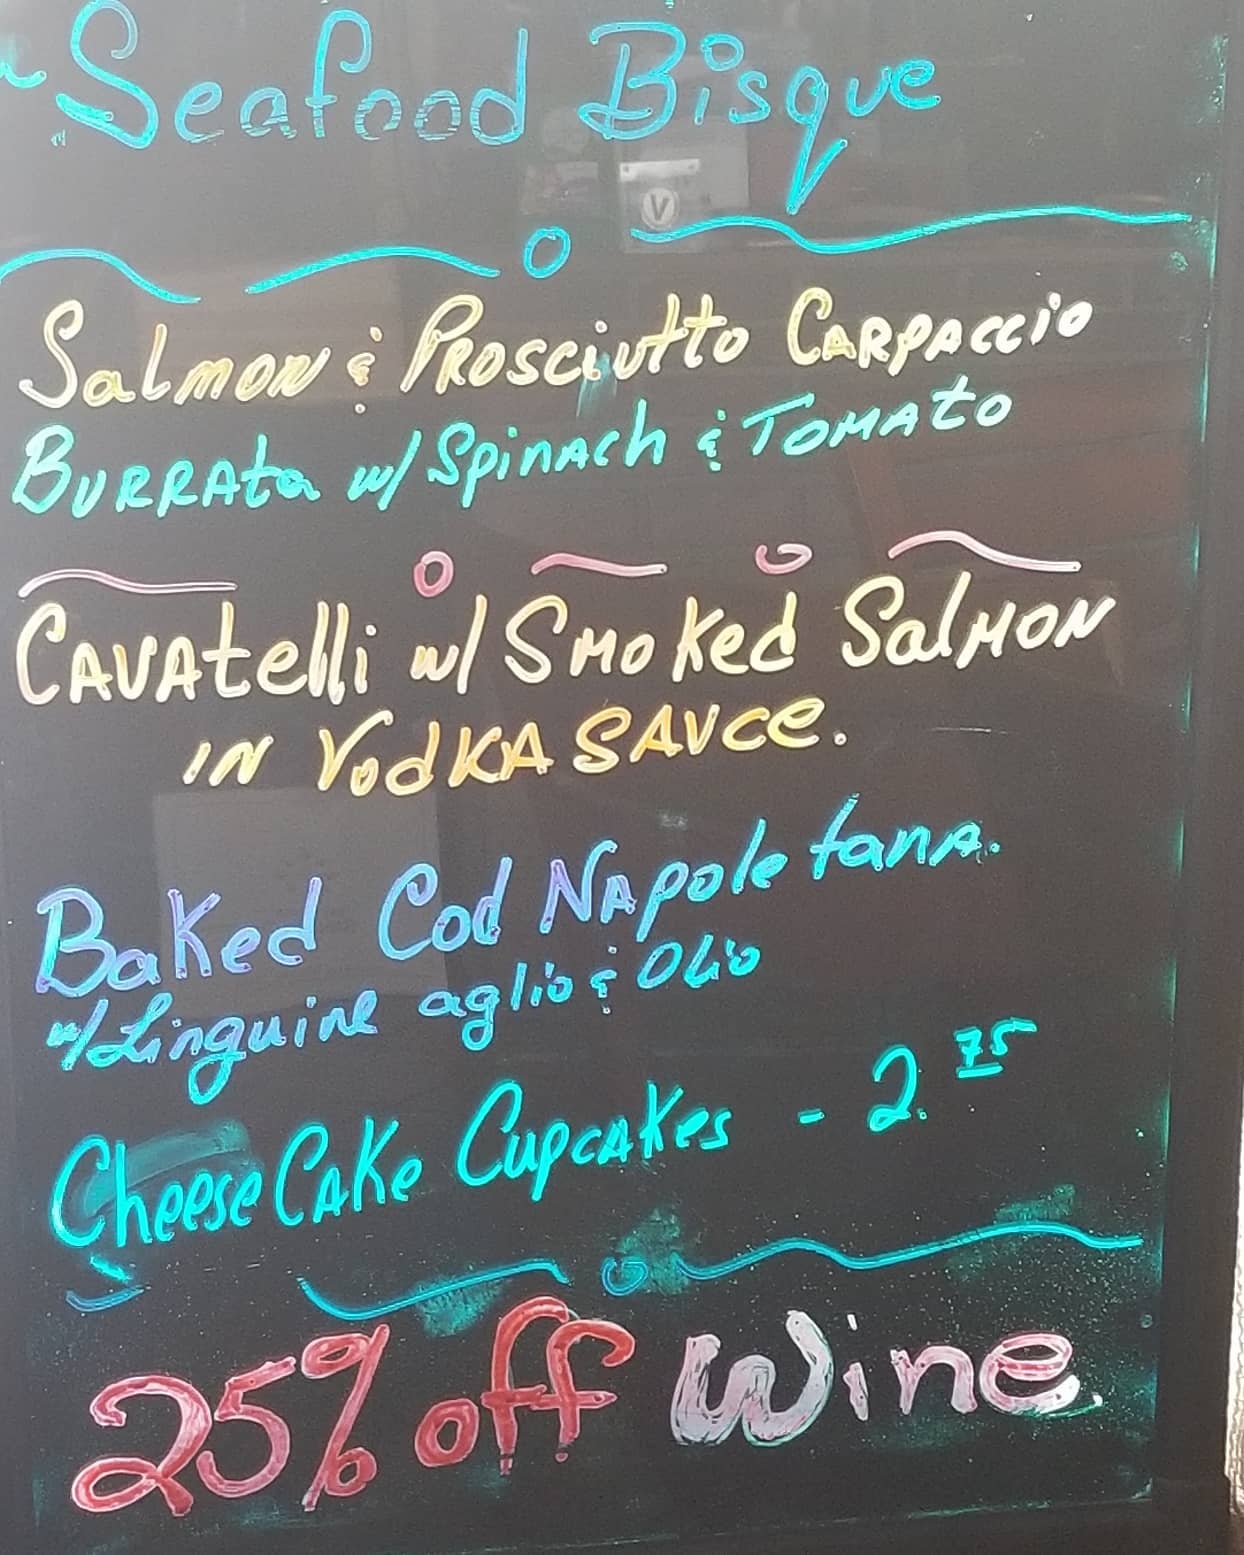 Seafood Bisque
Salmon & Prosciutto Carpaccio
Burrata w/ Spinach & Tomato
Cavatelli w/ Smoked Salmon
in Vodka Sauce.
Baked Cod Napoletana.
w/ Linguine aglio & Olio
Cheese Cake Cupcakes - 2.75
25% off Wine